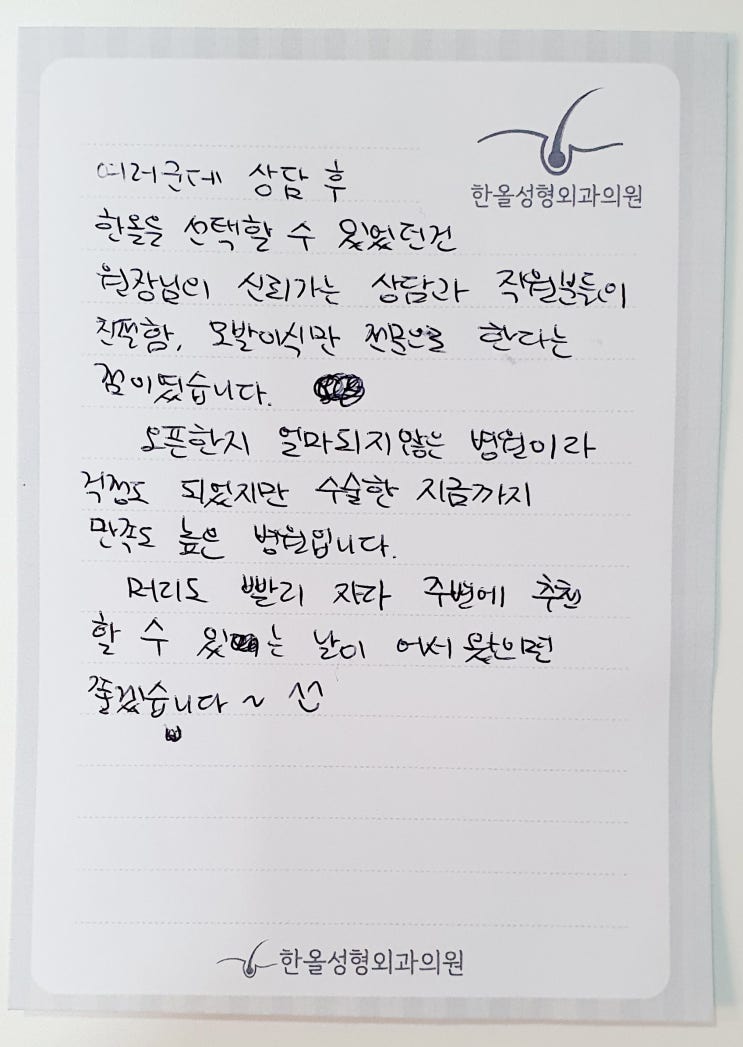 한올성형외과의원
여러군데 상담 후
한올을 선택할 수 있었던건
원장님의 신뢰가는 상담과 직원분들이
친절함, 모발이식만 전문으로 한다는
점이였습니다.
오픈한지 얼마되지않은 병원이라
걱정도 되었지만 수술한 지금까지
만족도 높은 병원입니다.
머리도 빨리 자라 주변에 추천
할 수 있는 날이 어서 왔으면
좋겠습니다 ~ ^^
한올성형외과의원